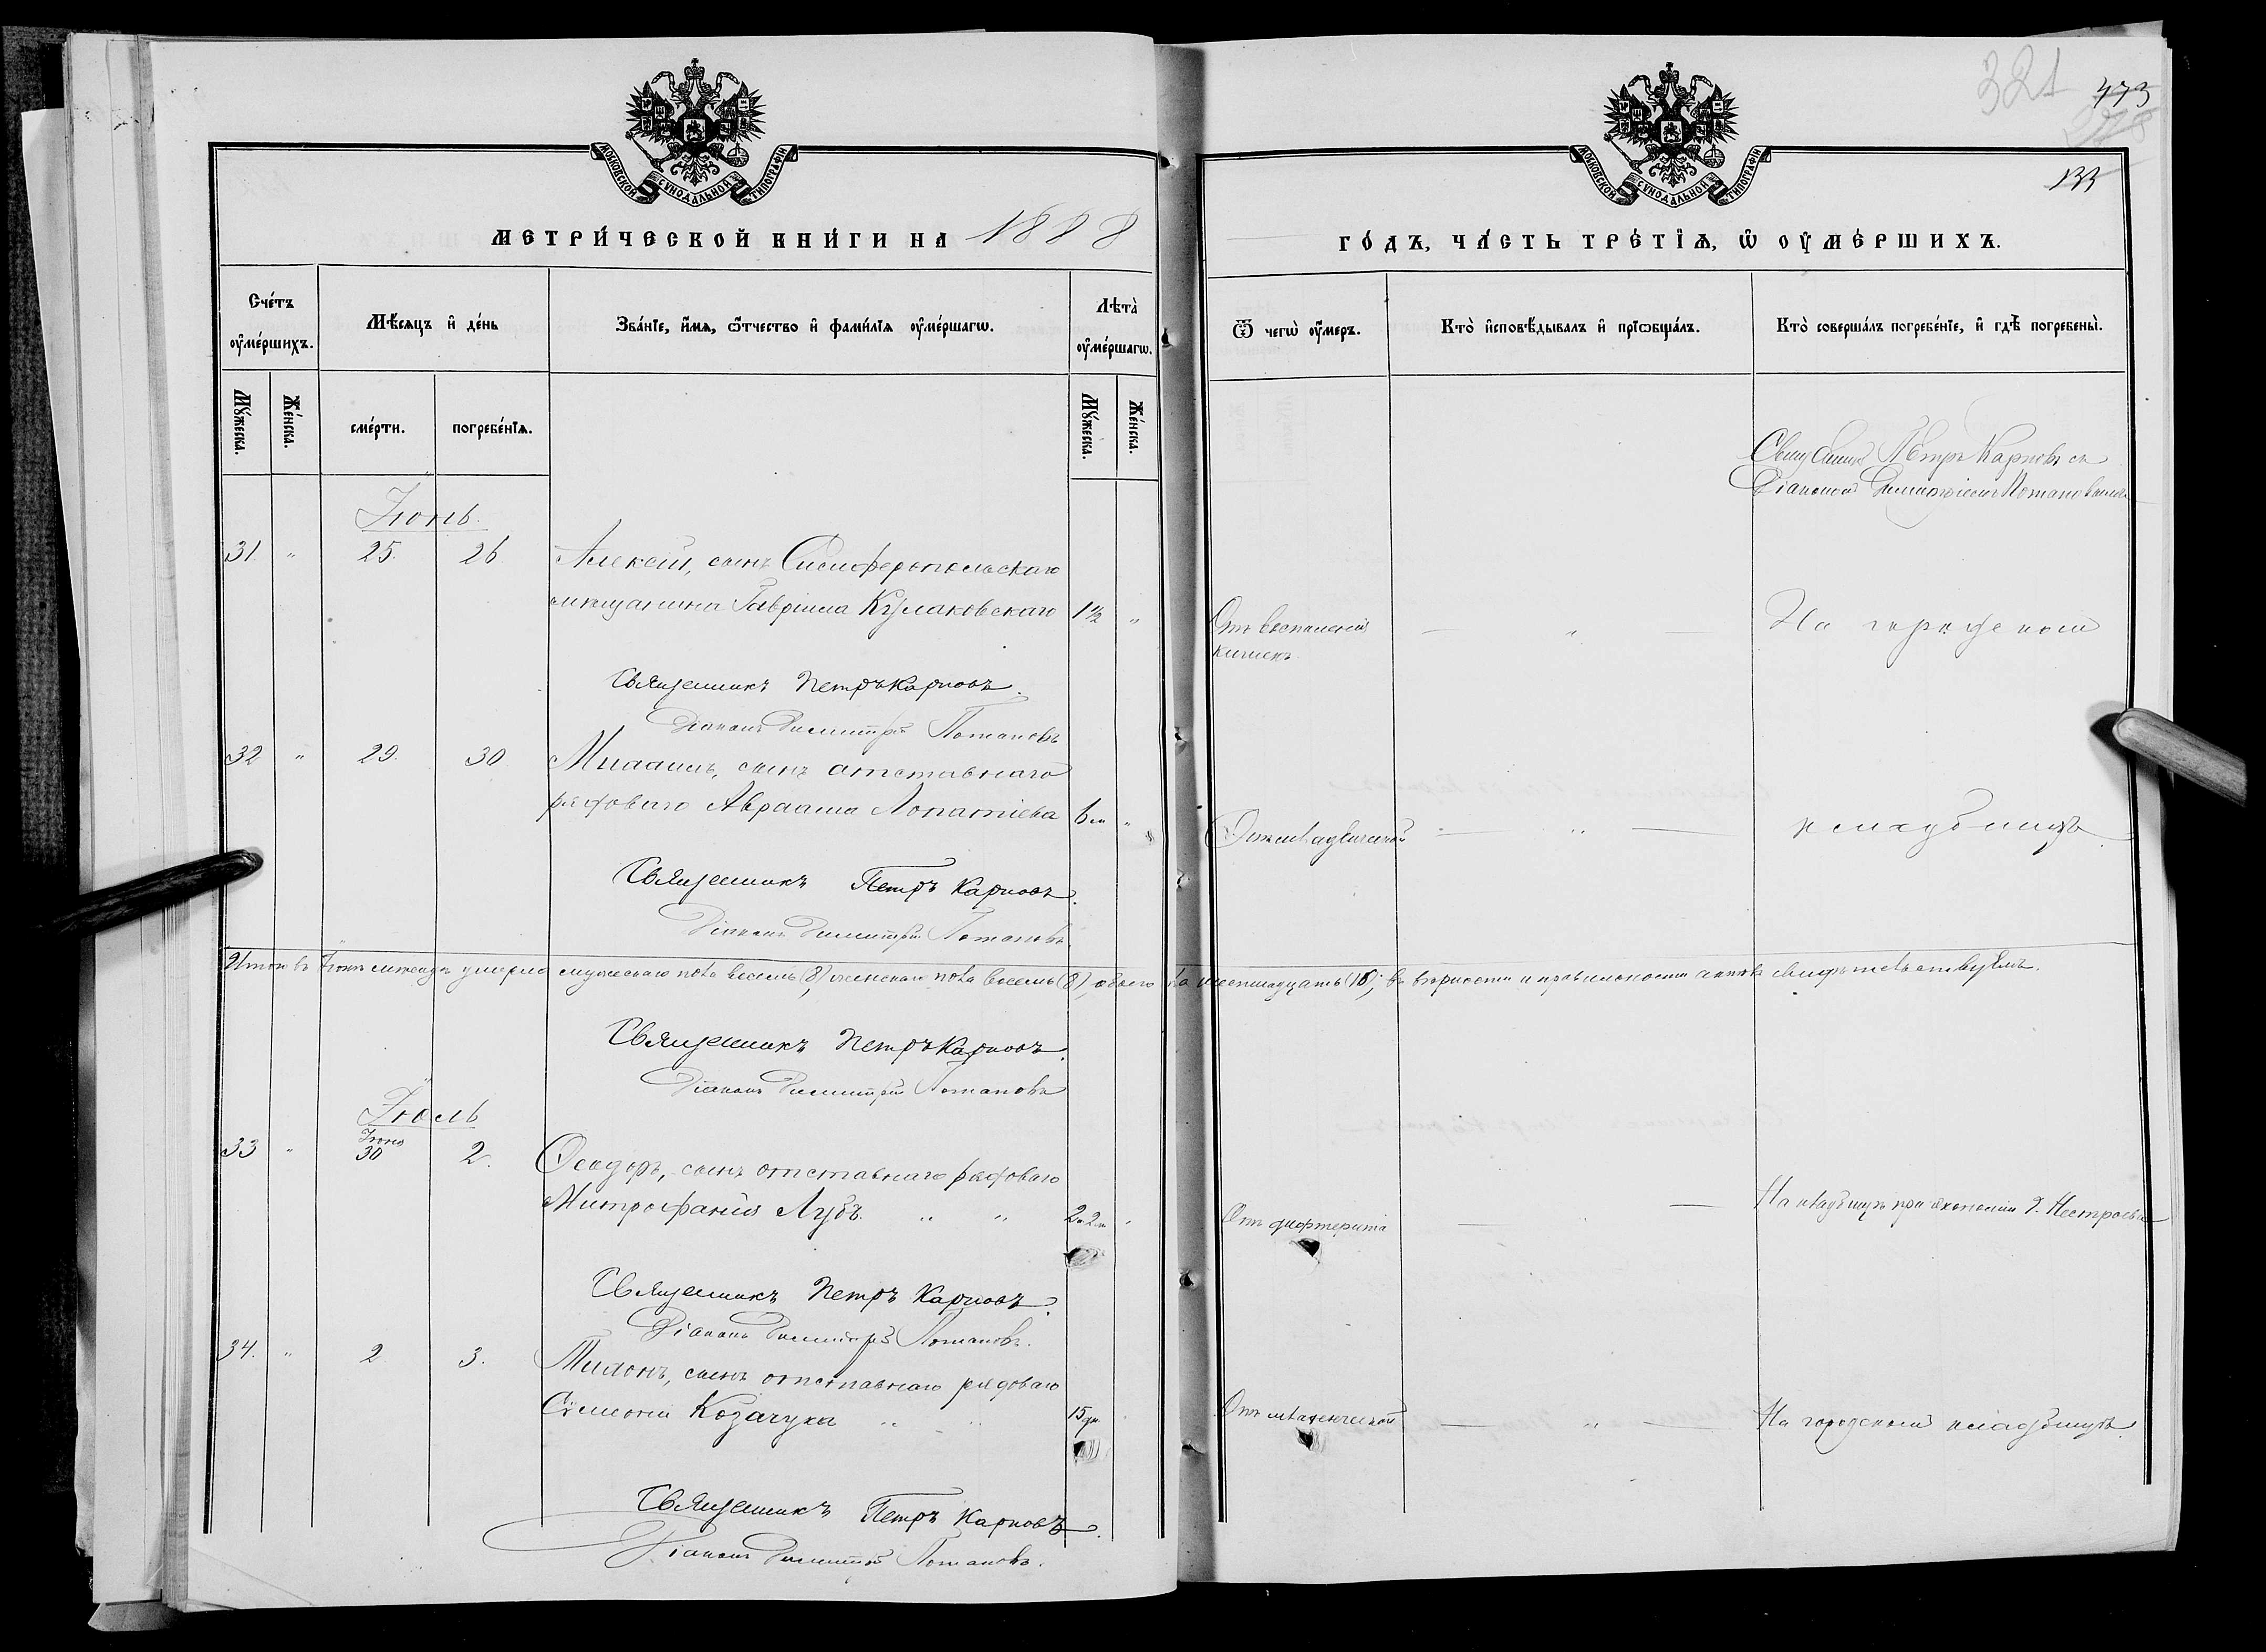 321
473
133
МОСКОВСКОЙ СѴНОДАЛЬНОЙ ТИПОГРАФІИ
МОСКОВСКОЙ СѴНОДАЛЬНОЙ ТИПОГРАФІИ
МЕТРИ́ЧЕСКОЙ КНИ́ГИ НА 1888
ГО́ДЪ, ЧА́СТЬ ТРЕ́ТІѦ, Ѿ ОУ҆МЕ́РШИХЪ.
Сче́тъ оу҆ме́ршихъ.
Мѣ́сяцъ и҆ де́нь
Зва́нїе, и҆́мя, ѻ҆́тчество и҆ фами́лїя оу҆ме́ршагѡ.
Лѣта̀ оу҆ме́ршагѡ.
Ѿ чегѡ̀ оу҆́меръ.
Кто̀ и҆сповѣ́дывалъ и҆ прїѡбща́лъ.
Кто̀ соверша́лъ погребе́нїе, и҆ гдѣ̀ погребены̀.
Мꙋ́жеска.
Же́нска.
сме́рти.
погребе́нїѧ.
Мꙋ́жеска.
Же́нска.
Священникъ Петръ Карповъ съ
Діакономъ Димитріемъ Потаповымъ
Іюнь.
31. " 25. 26 Алексій, сынъ Симферопольскаго
мѣщанина Гавріила Кулаковскаго 1½ "
Отъ воспаленія — " — На городскомъ
кишекъ
Священникъ Петръ Карповъ.
Діаконъ Димитрій Потаповъ
32 " 29. 30 Михаилъ, сынъ отставнаго
рядоваго Авраама Лопатіева 6 м "
Отъ младенческой — " — кладбищѣ
Священникъ Петръ Карповъ.
Діаконъ Димитрій Потаповъ.
Итого въ Іюнѣ мѣсяцѣ умерло мужескаго пола восемь (8) женскаго пола восемь (8), обоего пола шестнадцать (16); въ вѣрности и правильности актовъ свидѣтельствуемъ.
Священникъ Петръ Карповъ.
Діаконъ Димитрій Потаповъ
Іюль
33 " Іюня 30 2. Ѳеодоръ, сынъ отставнаго рядоваго
Митрофанія Лубъ. " " 2 2 м "
Отъ дифтерита — " — На кладбищѣ при экономіи Г. Нестроева
Священникъ Петръ Карповъ.
Діаконъ Димитрій Потаповъ.
34. " 2 3. Тихонъ, сынъ отставнаго рядоваго
Сѵмеона Козачука " " 15 дн.
Отъ младенческой — " — На городскомъ кладбищѣ.
Священникъ Петръ Карповъ.
Діаконъ Димитрій Потаповъ.